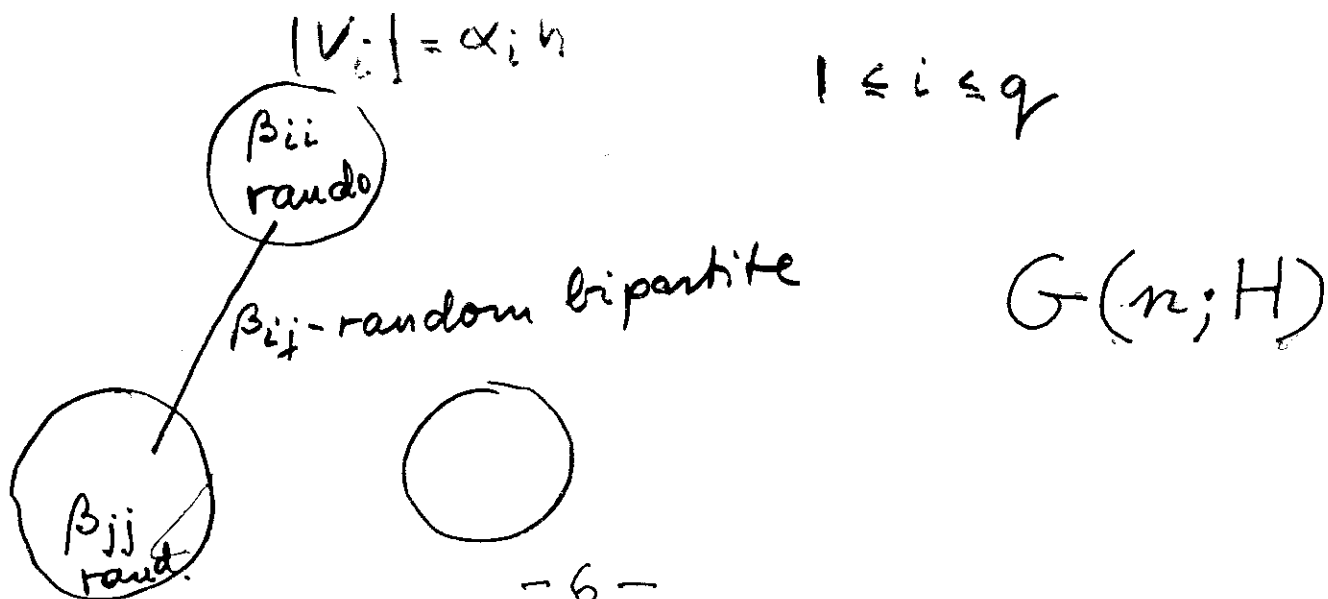 |V_i| = α_i n
1 ≤ i ≤ q
β_ii
rando
β_ij-random bipartite
G(n; H)
β_jj
rand.
- 6 -